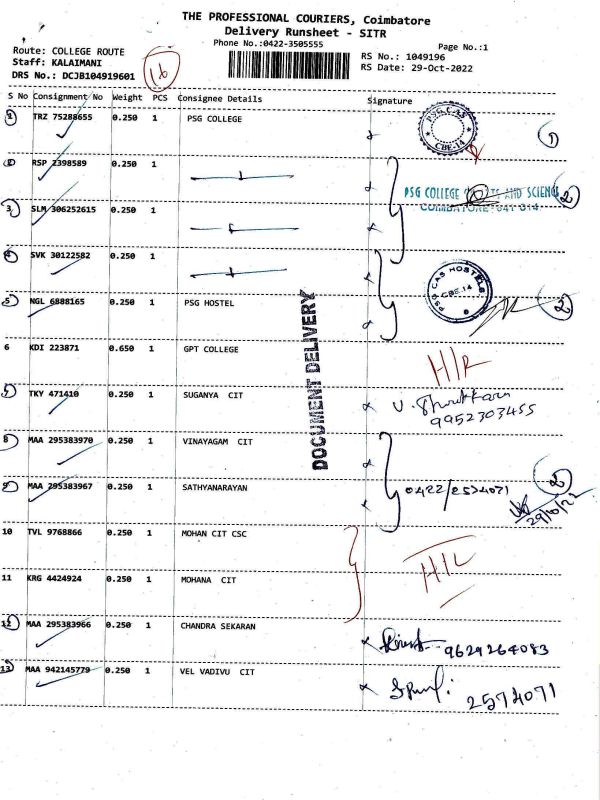 THE PROFESSIONAL COURIERS, Coimbatore
Delivery Runsheet - SITR
Phone No.:0422-3505555
Page No.:1
Route: COLLEGE ROUTE
RS No.: 1049196
Staff: KALAIMANI
RS Date: 29-Oct-2022
DRS No.: DCJB104919601
16
S No Consignment No Weight PCS Consignee Details Signature
1 TRZ 75288655 0.250 1 PSG COLLEGE
PSG CAS CBE-14
1
2 RSP 2398589 0.250 1
PSG COLLEGE OF ARTS AND SCIENCE
COIMBATORE 641 014
2
3 SLM 306252615 0.250 1
4 SVK 30122582 0.250 1
PSG CAS HOSTELS CBE.14
5 NGL 6888165 0.250 1 PSG HOSTEL
2
DOCUMENT DELIVERY
6 KDI 223871 0.650 1 GPT COLLEGE
7 TKY 471410 0.250 1 SUGANYA CIT
9952303455
8 MAA 295383970 0.250 1 VINAYAGAM CIT
9 MAA 295383967 0.250 1 SATHYANARAYAN
0422/2574071
2
29/10/22
10 TVL 9768866 0.250 1 MOHAN CIT CSC
11 KRG 4424924 0.250 1 MOHANA CIT
12 MAA 295383966 0.250 1 CHANDRA SEKARAN
9629264083
13 MAA 942145779 0.250 1 VEL VADIVU CIT
2574071